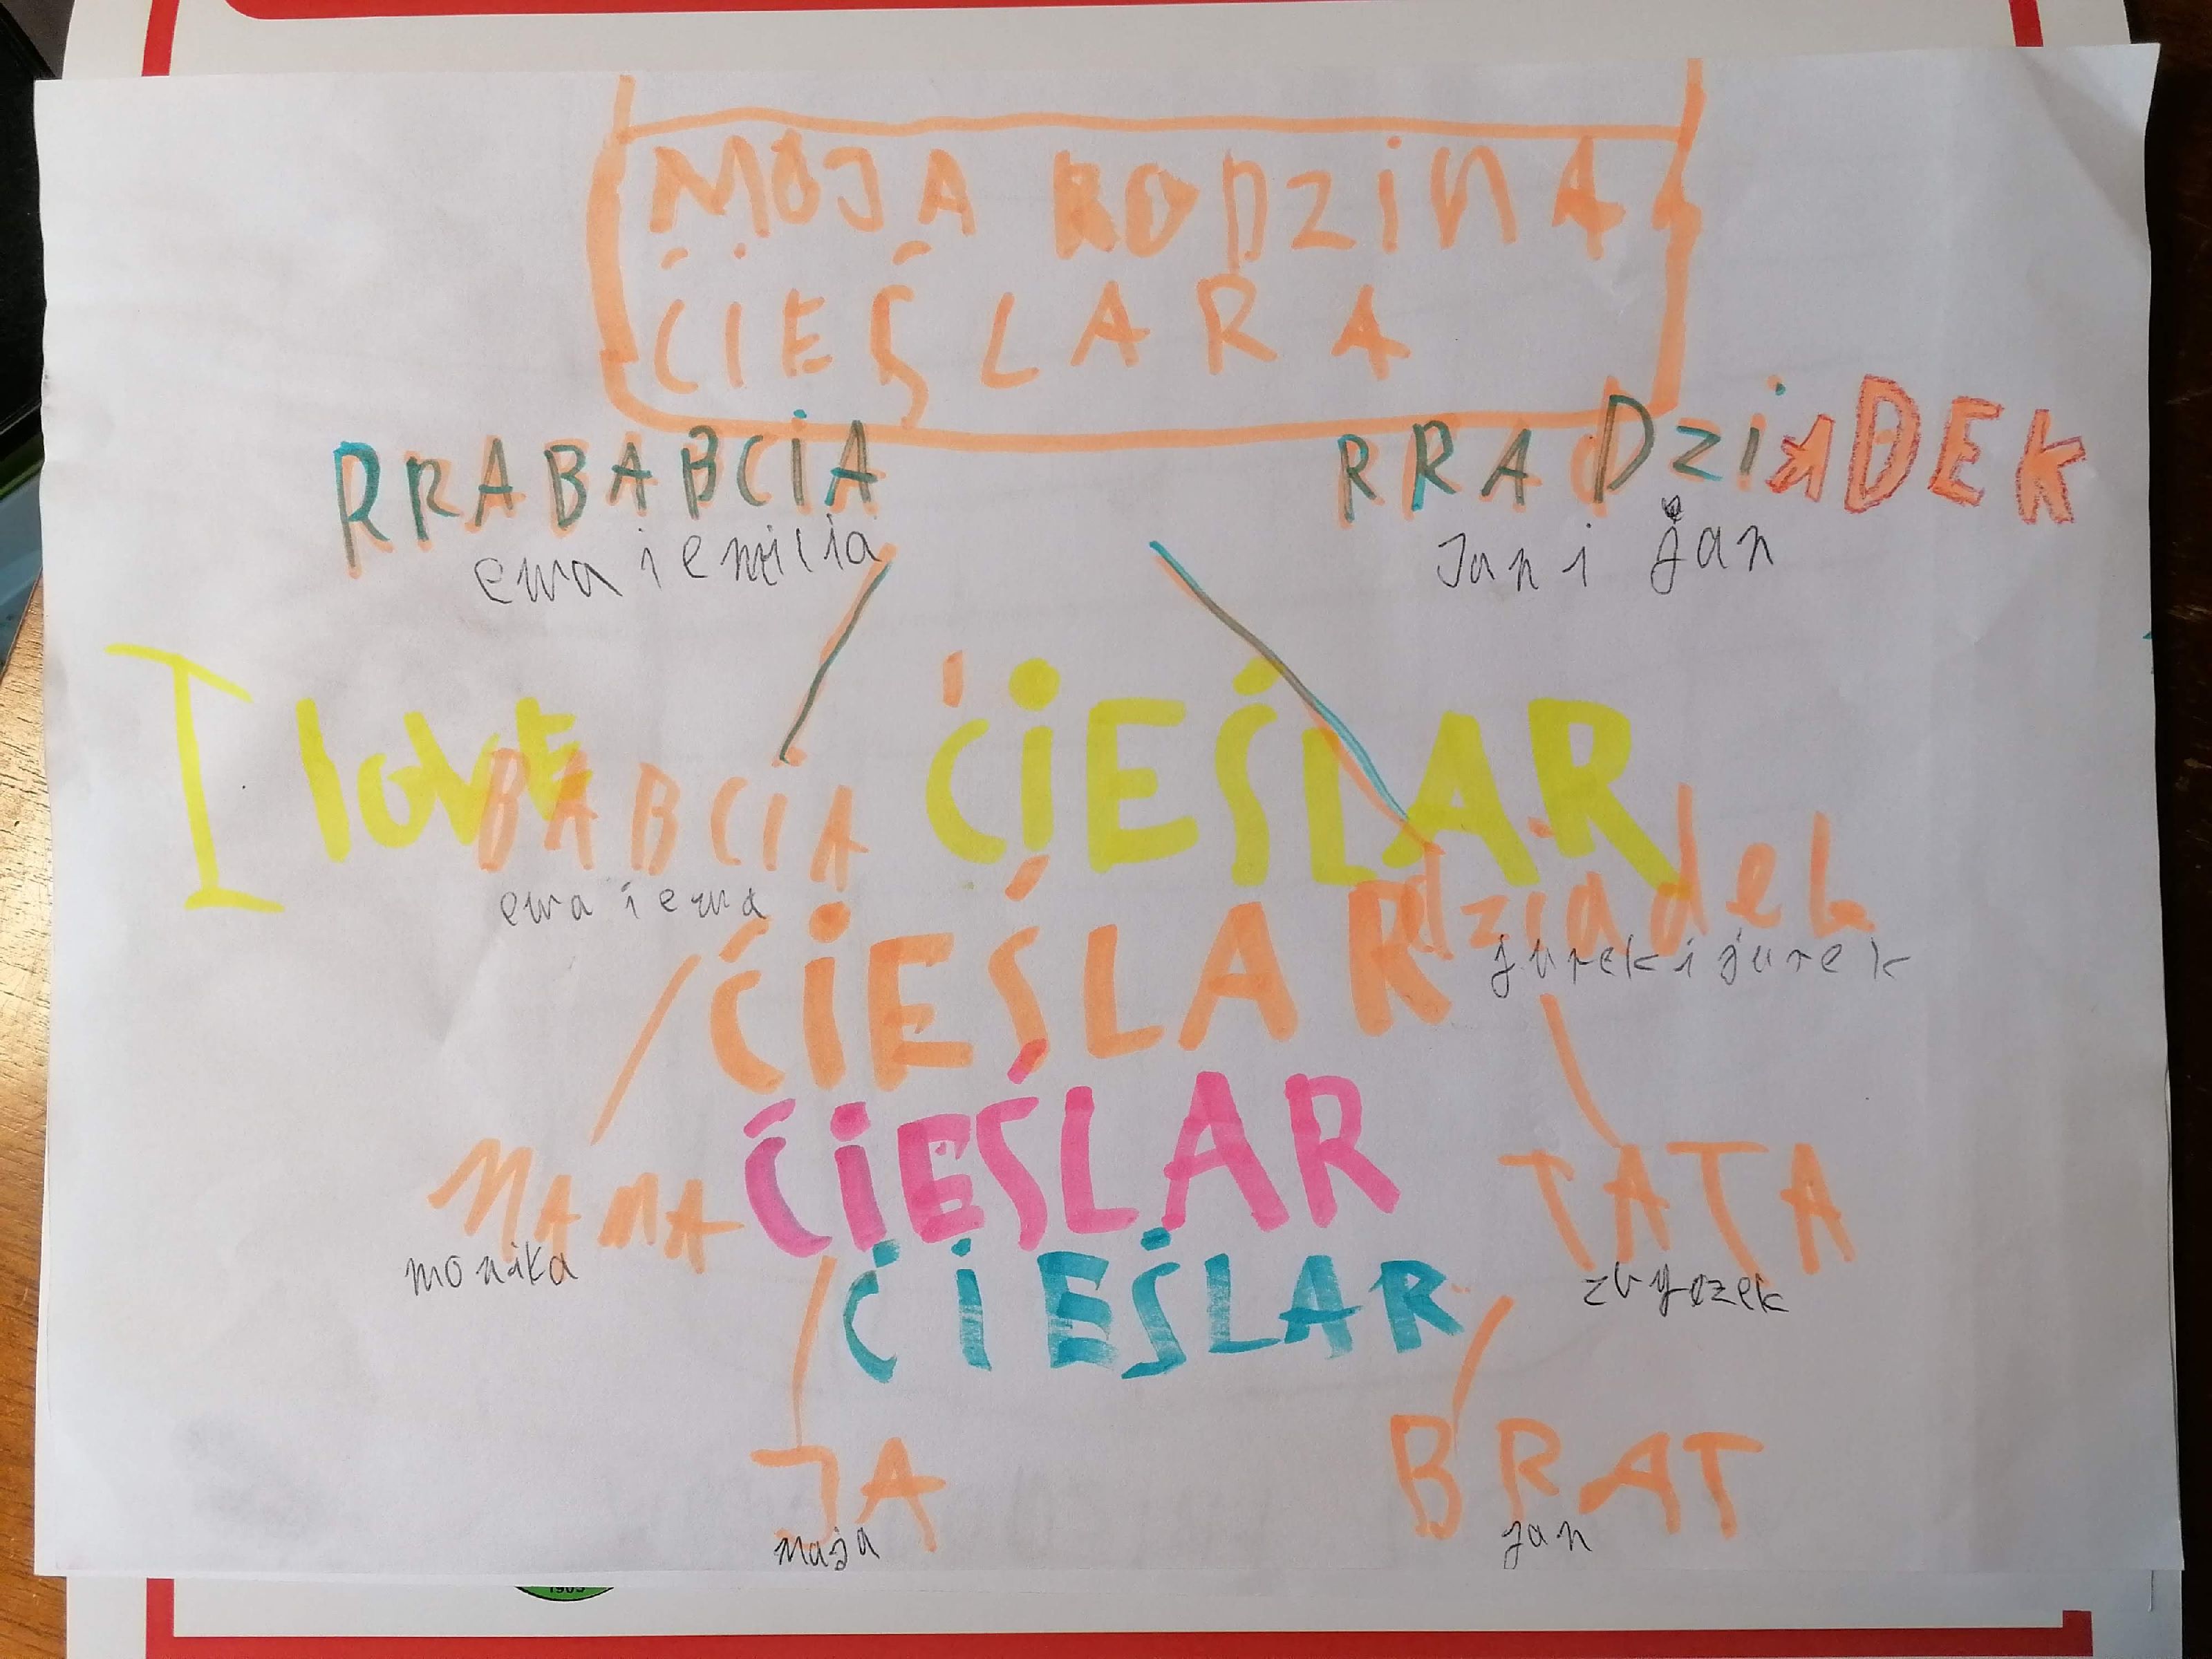 MOJA RODZINA
ĆIEŚLARA
RRABABCIA
RRADZIADEK
ewa i emilia
Jan i jan
I love ĆIEŚLAR
BABCIA
dziadek
ewa i ewa
jurek i jurek
ĆIEŚLAR
MAMA
ĆIEŚLAR
TATA
monika
zbyszek
ĆIEŚLAR
JA
BRAT
maja
jan
1903